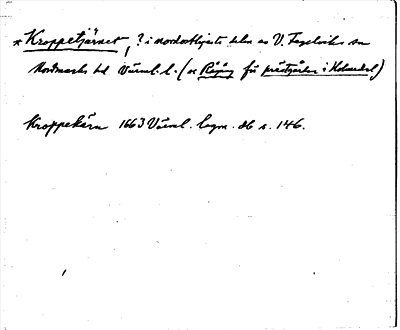 * Kroppetjärnet, ? i nordostligaste delen av V. Fågelviks sn
Nordmarks hd Värml. l. (se Röjäng för prästgården i Holmedal)
Kroppekärn 1663 Värml. lagm. db s. 146.